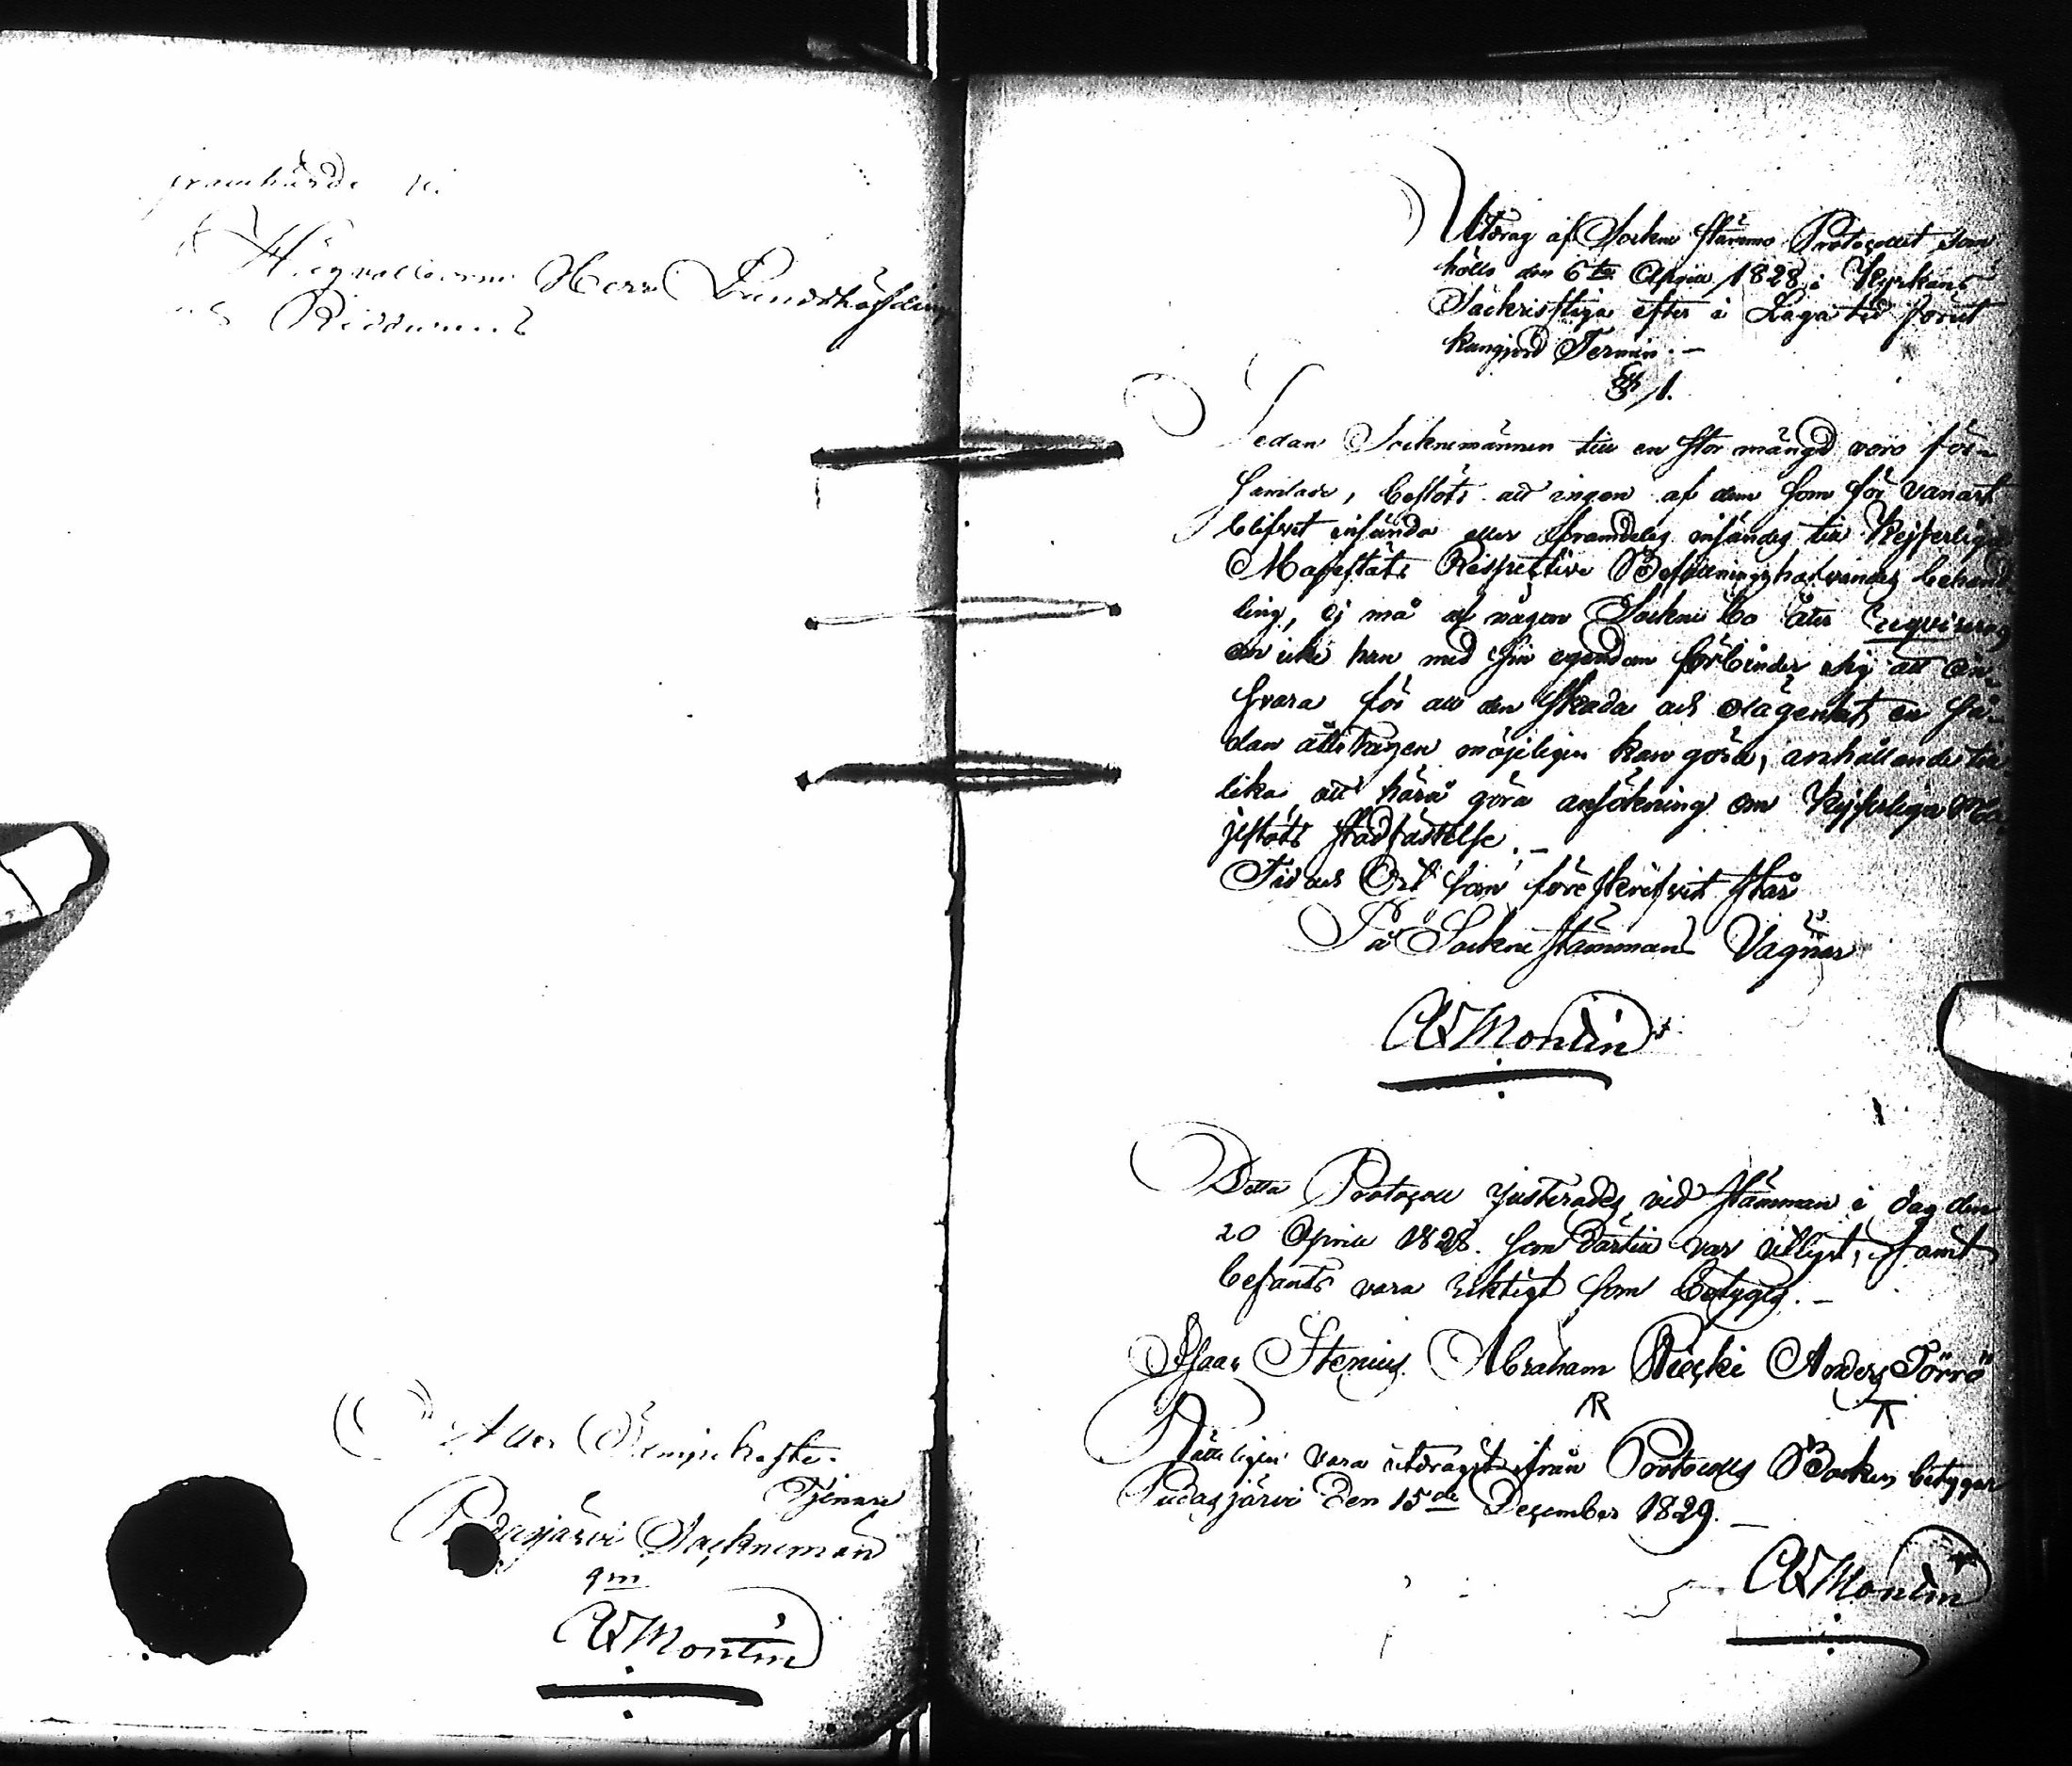 framhärda
Högvälborne Herr Landshöfding
och Riddarens
Aller Ödmjukaste
Tjenare
Pudasjärvi Socknemän
gm
Montin
Utdrag af Sockne stämmo Protocollet, som
hölls den 6te Aprill 1828 i Kyrkans
Sackristiga efter i Laga tid förut
kungjord Termin. —
§ 1.
Sedan Socknemännen till en stor mängd voro för-
samlade, beslöts att ingen af dem som för vanart
blifvit insända eller framdeles insändes till Kejserliga
Majestäts Respective Befallningshafvandes behand
ling, ej må af någon Sockne bo åter reqvireras
om icke han med sin egendom förbinder sig att an-
svara för all den skada och olägenhet en så-
dan återtagen möjeligen kan göra, anhållande till-
lika att härå göra ansökning om Kejserliga Ma-
jestäts stadfästelse. —
Tid och Ort som föreskrifvit står
På Sockne stämmans Vägnar
Montin
Detta Protocoll justerades vid stämman i dag den
20 Aprill 1828. som därtill var utlyst, samt
befants vara riktigt som betyges. —
Isaac Stenius. Abraham Anders Törrö
Rätteligen vara utdragit ifrån Protocolls Boken betygar
Pudasjärvi Den 15de December 1829. —
Montin